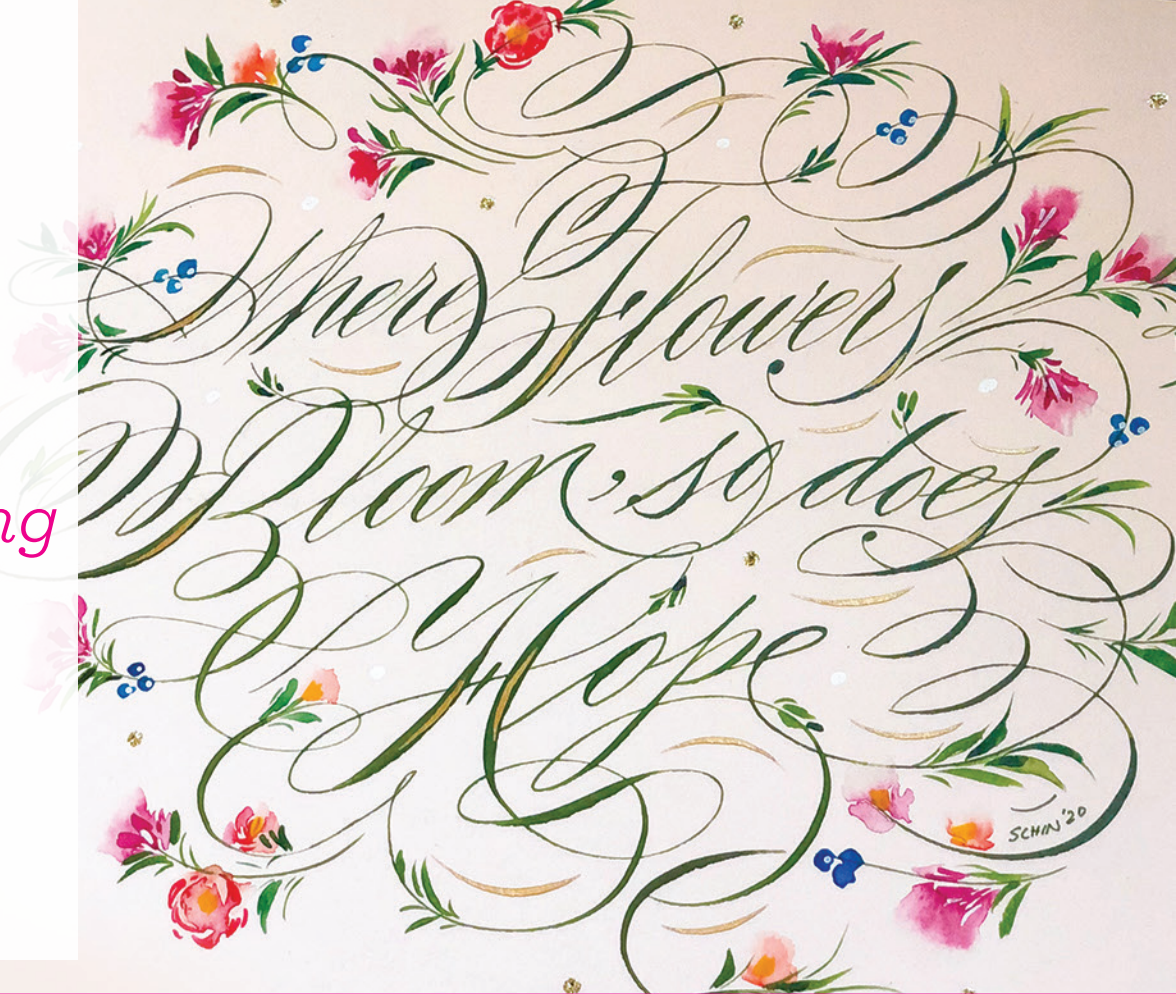 Where Flowers
Bloom, so does
Hope
SCHIN '20
ng